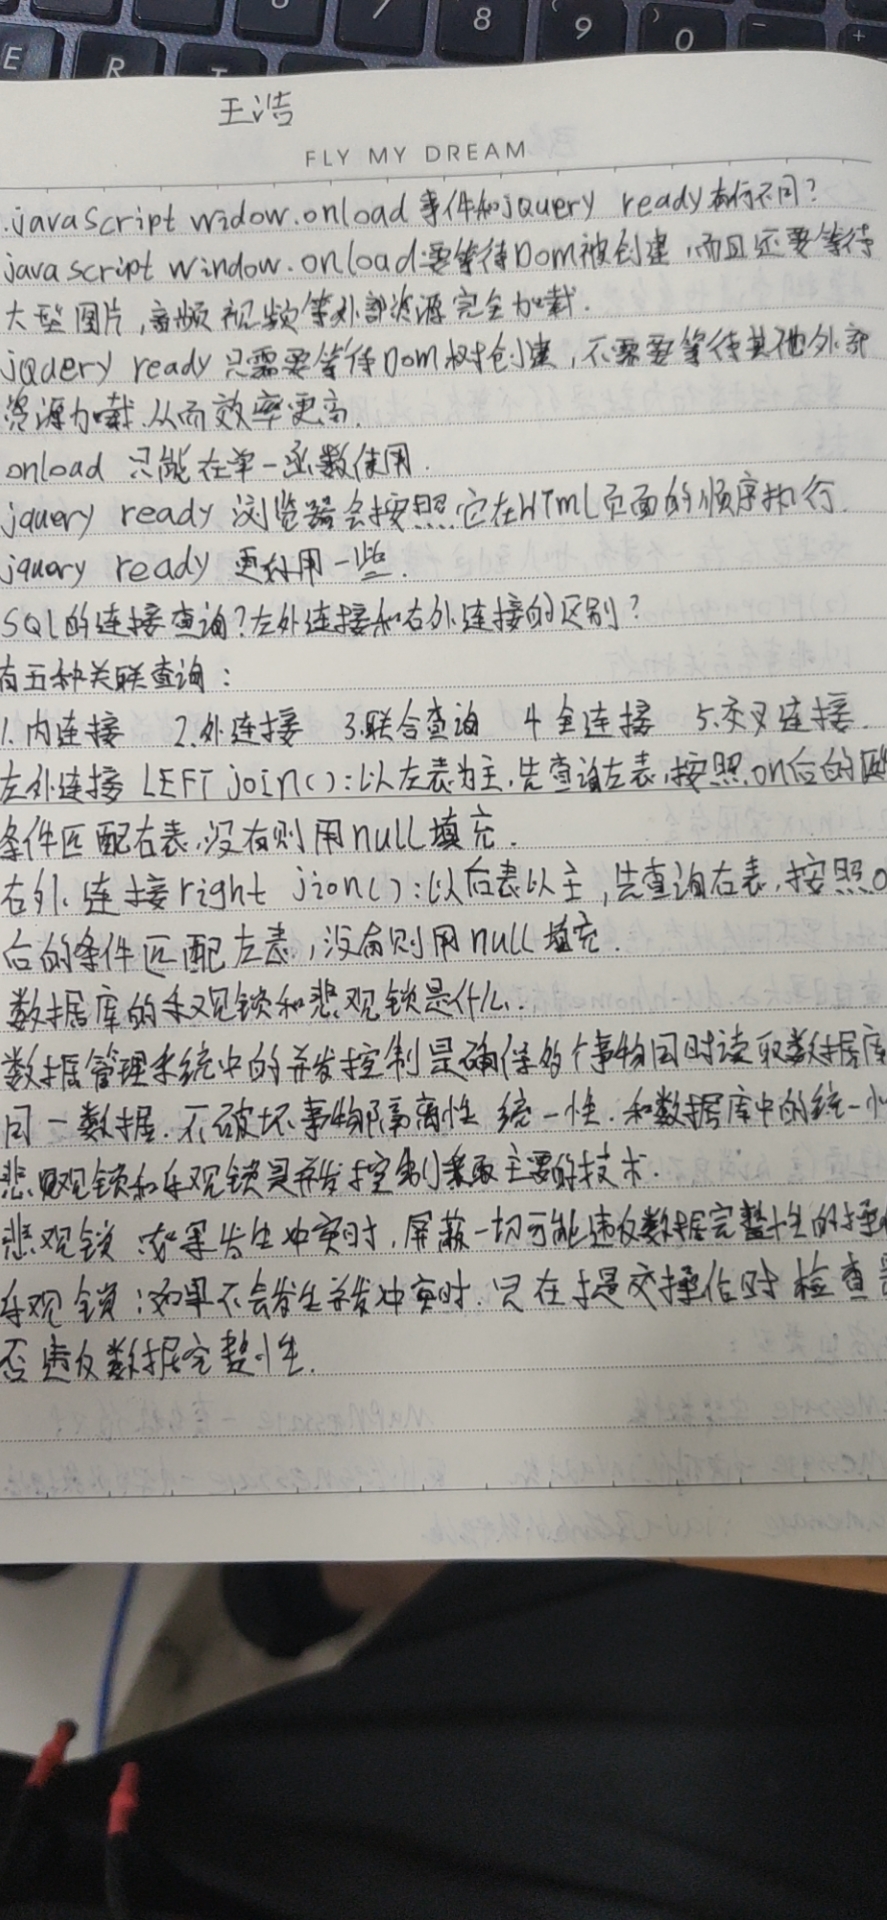 王浩
FLY MY DREAM
.javaScript widow.onload 事件和jQuery ready有何不同?
javascript window.onload 要等待Dom被创建,而且还要等待
大型图片,音频视频等外部资源完全加载.
jQuery ready 只需要等待Dom树创建,不需要等待其他外部
资源加载.从而效率更高.
onload 只能在单一函数使用.
jquery ready 浏览器会按照它在HTML页面的顺序执行.
jquery ready 更好用一些.
SQL的连接查询?左外连接和右外连接的区别?
有五种关联查询:
1.内连接 2.外连接 3.联合查询 4全连接 5.交叉连接.
左外连接 LEFT join():以左表为主,先查询左表,按照on后的
条件匹配右表,没有则用null填充.
右外连接right jion():以右表以主,先查询右表,按照o
后的条件匹配左表,没有则用null填充.
数据库的乐观锁和悲观锁是什么.
数据管理系统中的并发控制是确保多个事物同时读取数据库
同一数据.不破坏事物隔离性 统一性.和数据库中的统一性
悲观锁和乐观锁是并发控制采取主要的技术.
悲观锁 如果发生冲突时,屏蔽一切可能违反数据完整性的操
乐观锁:如果不会发生并发冲突时.只在提交操作时检查是
否违反数据完整性.